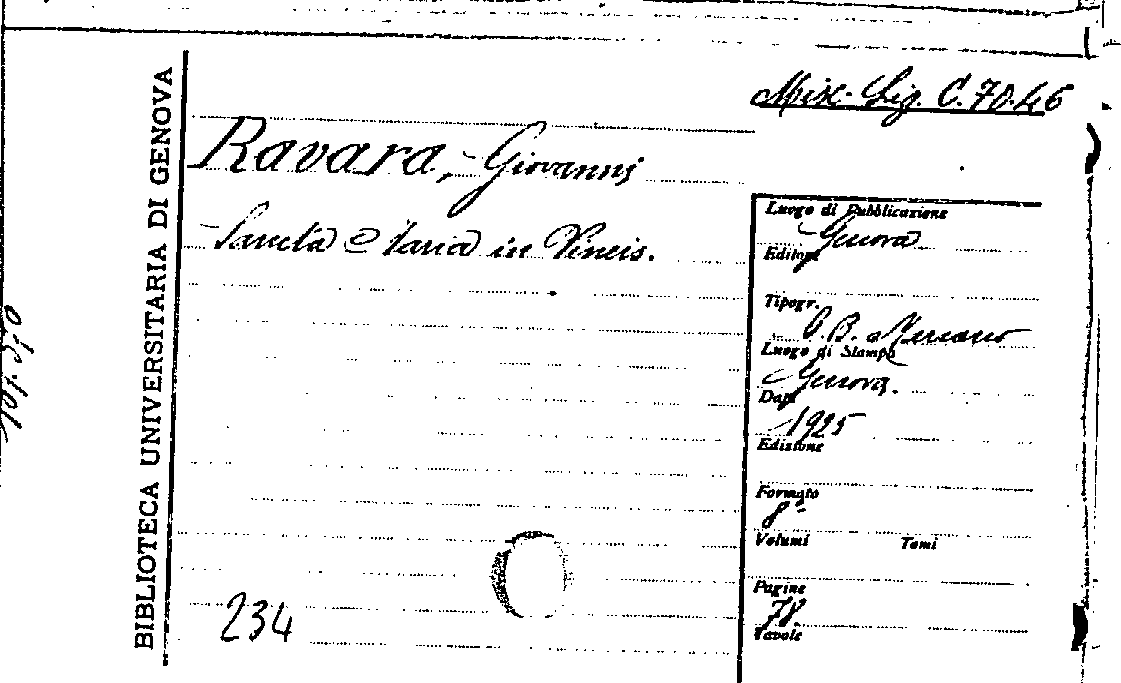 Misc. Lig. C.70.46
BIBLIOTECA UNIVERSITARIA DI GENOVA
Ravara, Giovanni
Sancta Maria in Vineis.
234
Luogo di Pubblicazione
Genova
Editore
Tipogr.
G. B. Marsano
Luogo di Stampa
Genova.
Data
1925
Edizione
Formato
8°
Volumi Tomi
Pagine
78.
Tavole